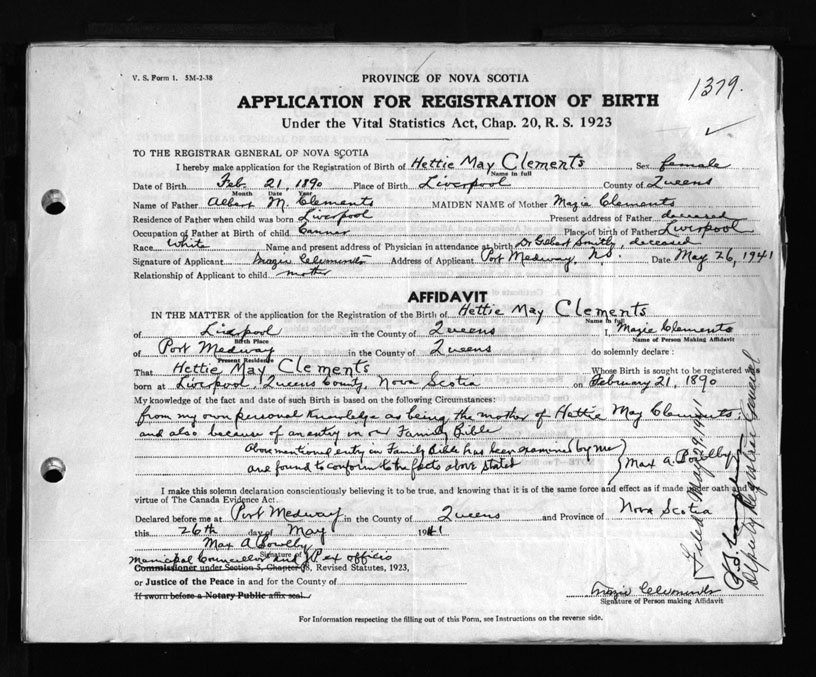 V. S. Form 1. 5M-2-38
PROVINCE OF NOVA SCOTIA
1379.
APPLICATION FOR REGISTRATION OF BIRTH
Under the Vital Statistics Act, Chap. 20, R. S. 1923
TO THE REGISTRAR GENERAL OF NOVA SCOTIA
I hereby make application for the Registration of Birth of Hettie May Clements, Sex female
Name in full
Date of Birth Feb. 21, 1890 Place of Birth Liverpool County of Queens
Month Date Year
Name of Father Albert M. Clements MAIDEN NAME of Mother Mazie Clements
Residence of Father when child was born Liverpool Present address of Father deceased
Occupation of Father at Birth of child Canner Place of birth of Father Liverpool
Race White Name and present address of Physician in attendance at birth Dr Gilbert Smith, deceased
Signature of Applicant Mazie Clements Address of Applicant Port Medway, N.S. Date May 26, 1941
Relationship of Applicant to child mother
AFFIDAVIT
IN THE MATTER of the application for the Registration of the Birth of Hettie May Clements
Name in full
of Liverpool in the County of Queens I, Mazie Clements
Birth Place Name of Person Making Affidavit
of Port Medway in the County of Queens do solemnly declare:
Present Residence
That Hettie May Clements Whose Birth is sought to be registered was
born at Liverpool, Queens County, Nova Scotia on February 21, 1890
My knowledge of the fact and date of such Birth is based on the following Circumstances:
from my own personal knowledge as being the mother of Hettie May Clements;
and also because of an entry in our Family Bible
Above mentioned entry in Family Bible has been examined by me
and found to conform to the facts above stated } Max A.
I make this solemn declaration conscientiously believing it to be true, and knowing that it is of the same force and effect as if made under oath and by
virtue of The Canada Evidence Act.
Declared before me at Port Medway in the County of Queens and Province of Nova Scotia
this 26th day of May 1941
Max A
Signature of
Municipal Councillor and J P ex officio
Commissioner under Section 5, Chapter 8, Revised Statutes, 1923,
or Justice of the Peace in and for the County of
If sworn before a Notary Public affix seal
Mazie Clements
Signature of Person making Affidavit
For Information respecting the filling out of this Form, see Instructions on the reverse side.
Filed May 29, 1941
Deputy Registrar General